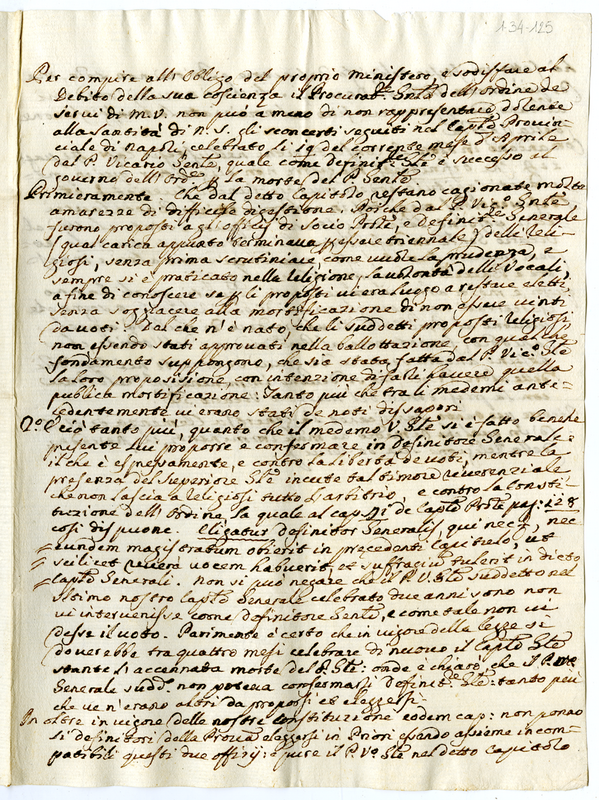 1-34-125
Per compire all'Obligo del proprio ministero, e sodisfare al
Debito della sua coscienza il Procurat.re Gen.le dell'Ordine de
Servi di M.V. non può a meno di non rappresentare dolente
alla Santità di N.S. gli sconcerti seguiti nel Cap.lo Provin-
ciale di Napoli celebrato li 19 del corrente mese d'Aprile
dal P. Vicario Gen.le, quale come Definit.re Gle è successo al
governo dell'Ord.e la morte del P. Gen.le
Primieramente. Che dal detto Capitolo restano cagionate molte
amarezze di difficile digestione. Poiche dal P. Vic.o Gnle
furono proposti agli offitij di Socio Prle, e Definit.re Generale
(qual carica appunto terminava sessennale) delli Reli-
giosi, senza prima scrutiniare, come vuole la prudenza, e
sempre si è praticato nella Religione, la volontà delli Vocali,
a fine di conoscere se gli proposti vi era luogo a restare eletti
senza soggiacere alla mortificazione di non essere vinti
da voti. Dal che n'è nato, che li suddetti proposti Religiosi
non essendo stati approvati nella ballottazione, con qualche
fondamento suppongono, che sia stata fatta dal P. Vic.o Gle
la loro proposizione, con intenzione di farli havere quella
publica mortificazione: Tanto più che tra li medemi ante-
cedentemente vi erano stati de noti dissapori
2.o E ciò tanto più, quanto che il medemo V. Gle si è fatto benche
presente lui proporre e confermare in Definitore Generale:
il che è espressamente, e contro la libertà de voti, mentre la
presenza del Superiore Gle incute tal timore riverenziale
che non lascia a Religiosi tutto l'arbitrio, e contro la Consti-
tuzione dell'Ordine, la quale al cap. de Cap.lo Prle pag: 128
così dispone. Eligatur Definitor Generalis, qui nec, nec
eundem magistratum obierit in precedenti Capitulo, ut
scilicet vocem habuerit, et suffragium tulerit in dicto
Cap.lo Generali. Non si può negare che il P. V. Gle suddetto nel
nostro Cap.lo Generale celebrato due anni sono non
vi intervenisse come Definitore Gen.le, e come tale non vi
desse il voto. Parimente è certo che in vigore della legge si
doverebbe tra quattro mesi celebrare di nuovo il Cap.lo Gle
stante l'accennata morte del P. Gle: onde è chiaro, che il P. Vic.o
Generale sudd.o non poteva confermarsi Definit.re Gle: tanto più
che ve n'erano altri da proporsi et eleggersi.
In oltre in vigore delle nostre Constituzione eodem cap: non ponno
si Definitori della Prov.a eleggersi in Priori essendo assieme incom-
patibili questi due offizij: e pure il P. V.o Gle nel detto Capitolo